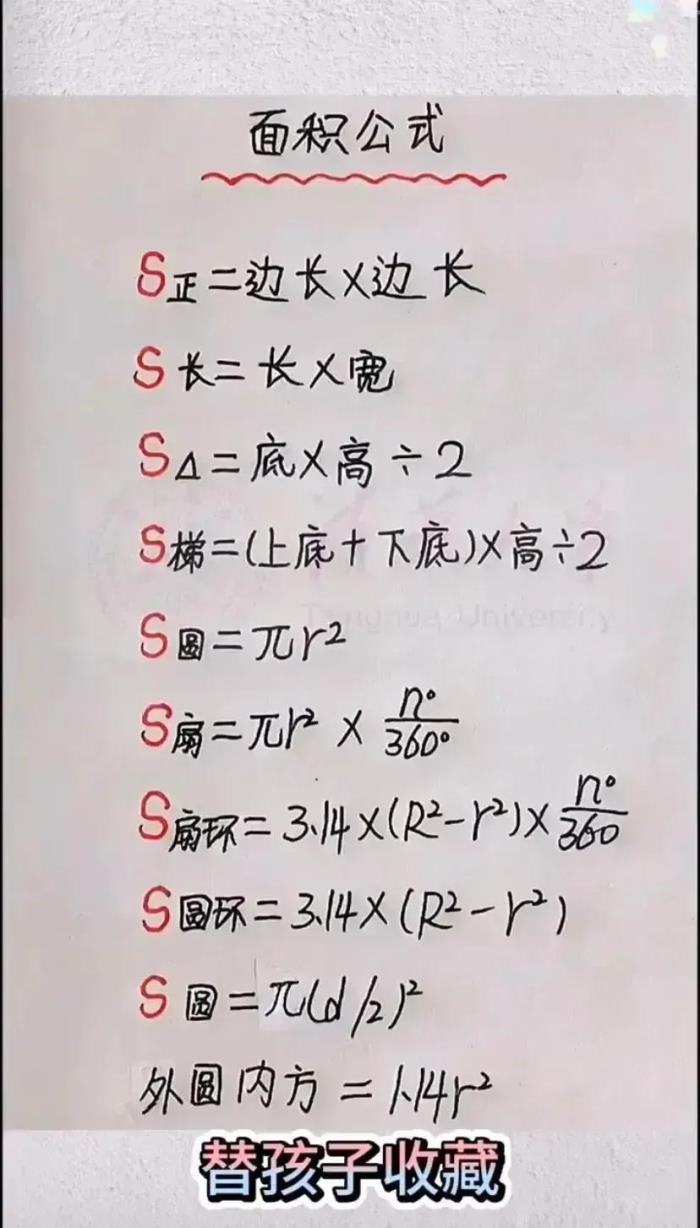 面积公式
S正=边长×边长
S长=长×宽
S△=底×高÷2
S梯=(上底+下底)×高÷2
S圆=πr²
S扇=πr²×n°/360°
S扇环=3.14×(R²-r²)×n°/360
S圆环=3.14×(R²-r²)
S圆=π(d/2)²
外圆内方=1.14r²
Tsinghua University
替孩子收藏